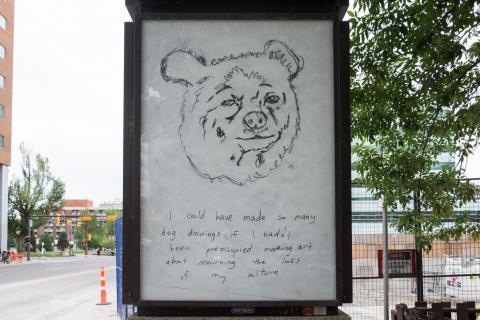 I could have made so many
dog drawings if I hadn't
been preoccupied making art
about mourning the loss
of my culture